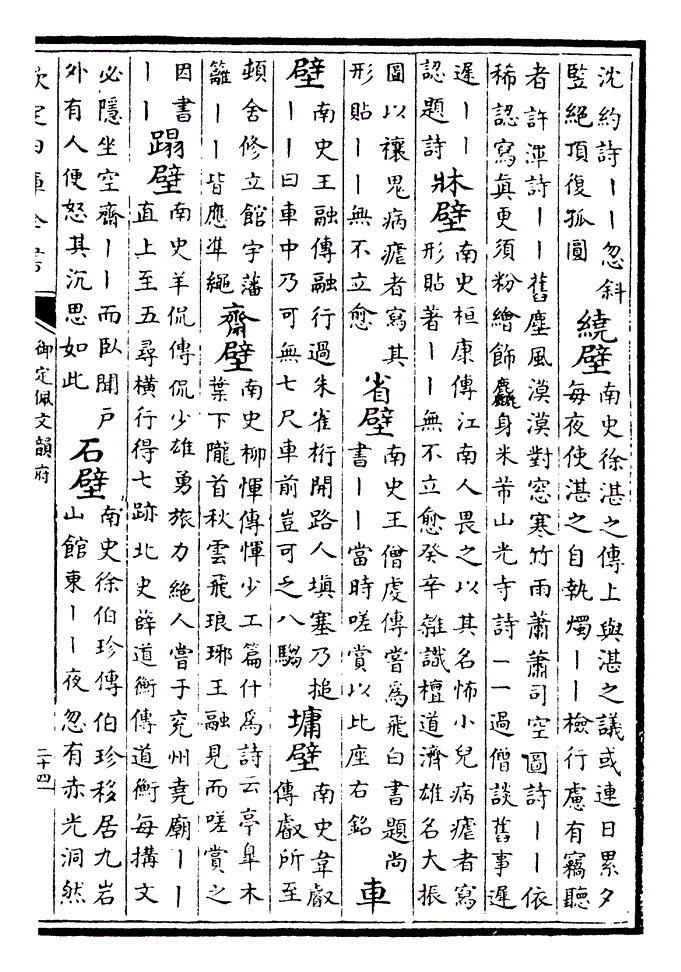 沈約詩丨丨忽斜
監絕頂復孤圓
繞壁
南史徐湛之傳上與湛之議或連日累夕
每夜使湛之自執燭丨丨檢行慮有竊聽
者許渾詩丨丨舊塵風漠漠對窓寒竹雨蕭蕭司空圖詩丨丨依
稀認寫真更須粉繪飾麤身米芾山光寺詩一一過僧談舊事遲
遲丨丨
認題詩
牀壁
南史桓康傳江南人畏之以其名怖小兒病瘧者寫
形貼著丨丨無不立愈癸辛雜識檀道濟雄名大振
圖以禳鬼病瘧者寫其
形貼丨丨無不立愈
省壁
南史王僧虔傳嘗為飛白書題尚
書丨丨當時嗟賞以比座右銘
車
壁
南史王融傳融行過朱雀桁開路人塡塞乃搥
丨丨曰車中乃可無七尺車前豈可乏八騶
墉壁
南史韋叡
傳叡所至
頓舍修立館宇藩
籬丨丨皆應準繩
齋壁
南史柳惲傳惲少工篇什為詩云亭臯木
葉下隴首秋雲飛琅琊王融見而嗟賞之
因書
丨丨
蹋壁
南史羊侃傳侃少雄勇旅力絕人嘗于兗州堯廟丨丨
直上至五尋橫行得七跡北史薛道衡傳道衡每搆文
必隱坐空齋丨丨而臥聞戶
外有人便怒其沉思如此
石壁
南史徐伯珍傳伯珍移居九岩
山館東丨丨夜忽有赤光洞然
欽定四庫全書
御定佩文韻府
二十四